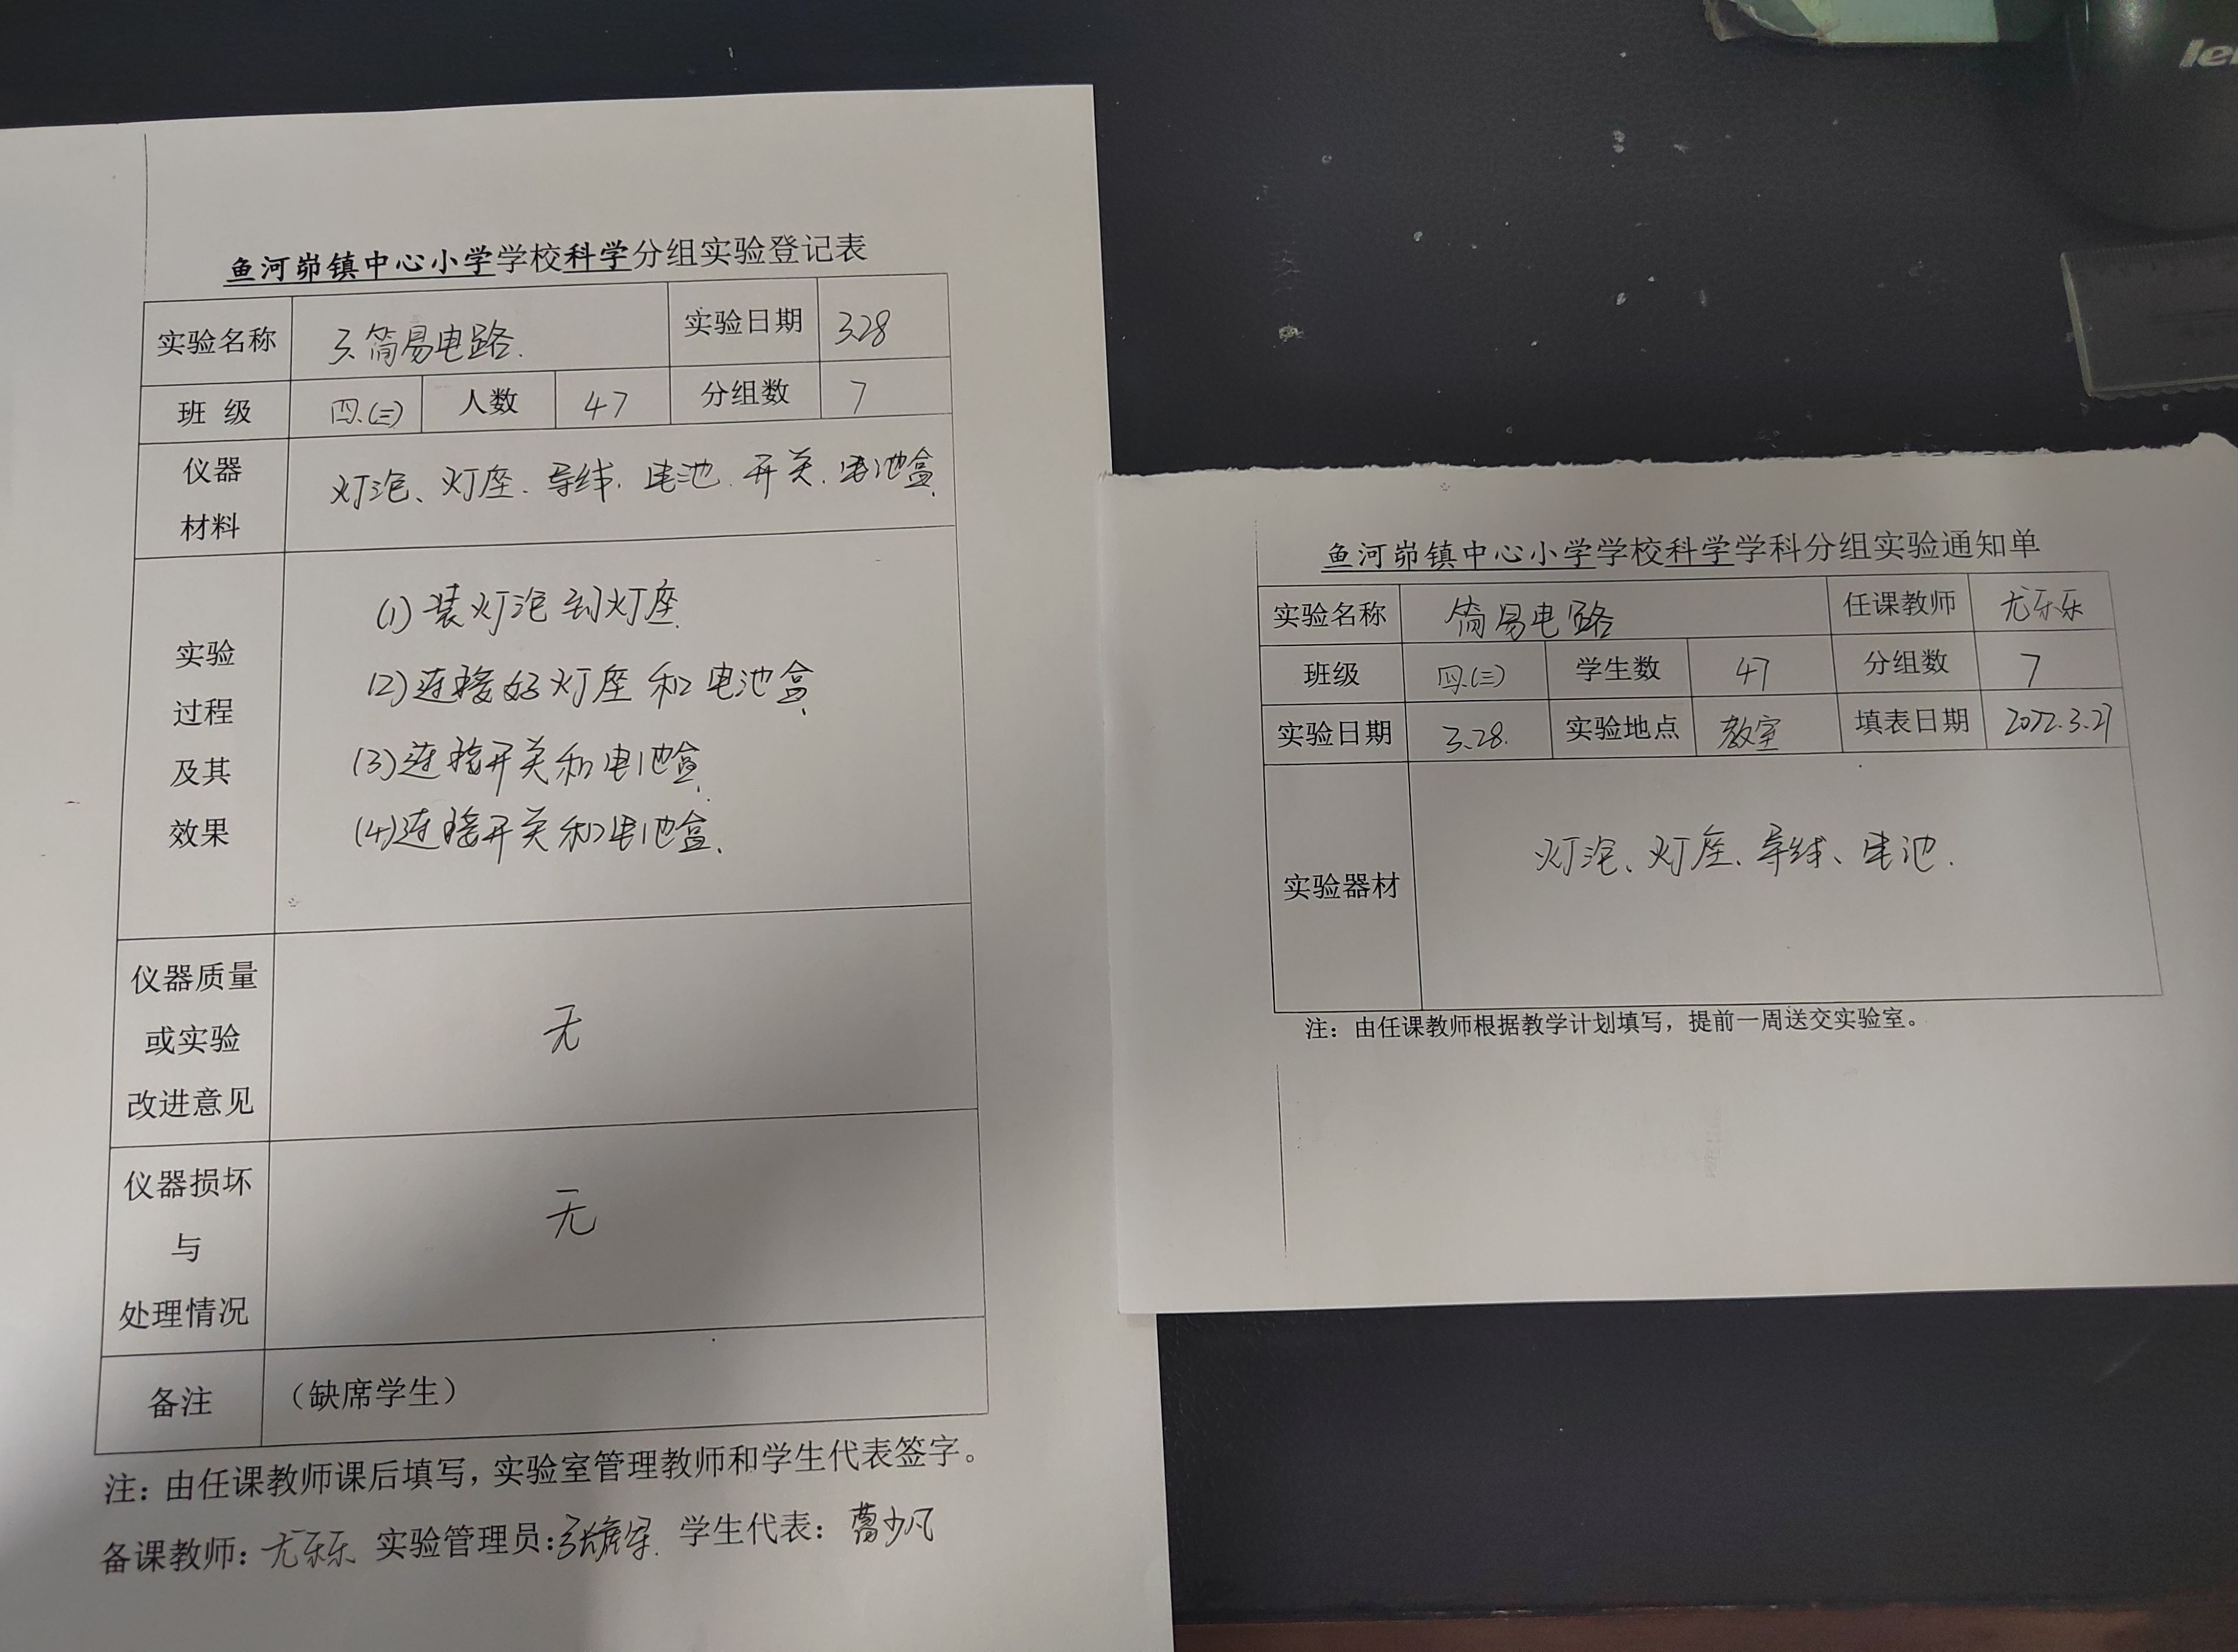 鱼河峁镇中心小学学校科学分组实验登记表
实验名称 3、简易电路. 实验日期 3.28
班 级 四.(三) 人数 47 分组数 7
仪器
材料
灯泡、灯座、导线、电池、开关、电池盒.
实验
过程
及其
效果
(1) 装灯泡到灯座.
(2) 连接好灯座和电池盒.
(3) 连接开关和电池盒.
(4) 连接开关和电池盒.
仪器质量
或实验
改进意见
无
仪器损坏
与
处理情况
无
备注 (缺席学生)
注：由任课教师课后填写，实验室管理教师和学生代表签字。
备课教师：尤乐乐 实验管理员： 学生代表：
鱼河峁镇中心小学学校科学学科分组实验通知单
实验名称 简易电路 任课教师 尤乐乐
班级 四.(三) 学生数 47 分组数 7
实验日期 3.28. 实验地点 教室 填表日期 2022.3.21
实验器材 灯泡、灯座、导线、电池.
注：由任课教师根据教学计划填写，提前一周送交实验室。